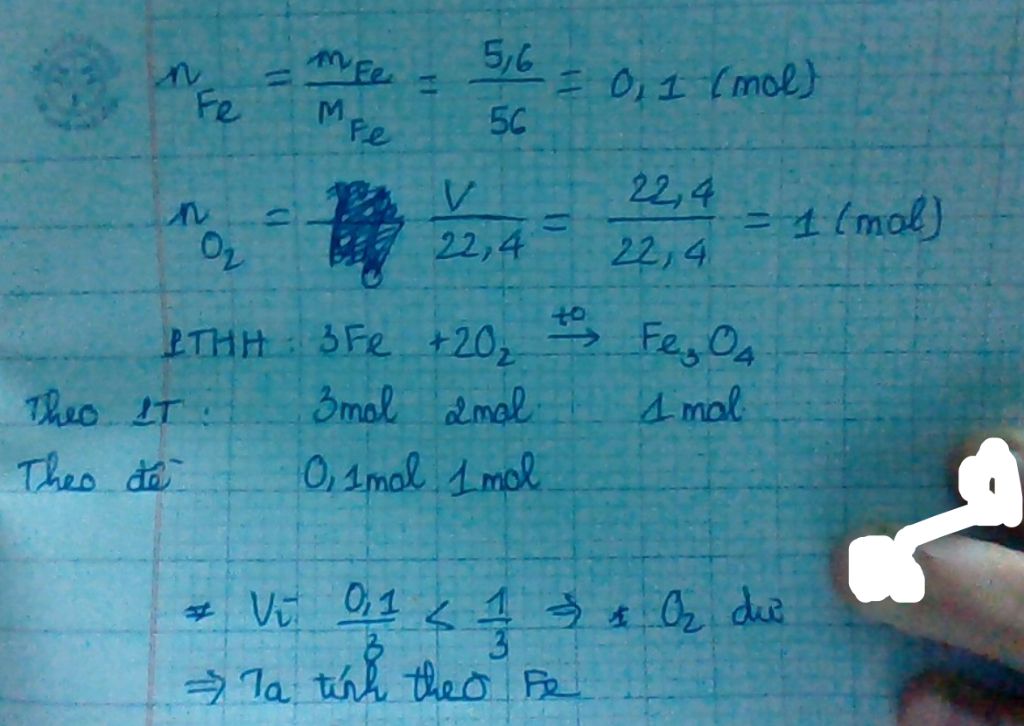 n Fe = m Fe / M Fe = 5,6 / 56 = 0,1 (mol)
n O2 = V / 22,4 = 22,4 / 22,4 = 1 (mol)
PTHH : 3Fe + 2O2 t° → Fe3O4
Theo PT : 3mol 2mol 1 mol
Theo đề 0,1mol 1mol
* Vì 0,1 / 3 < 1 / 3 ⇒ * O2 dư
⇒ Ta tính theo Fe